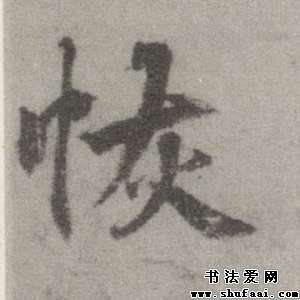 恢
书法爱网
www.shufaai.com